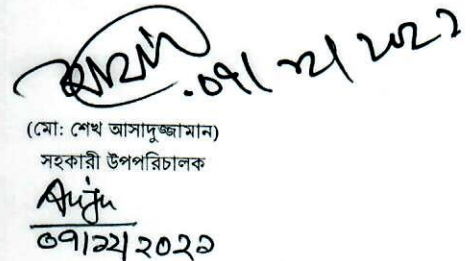 ০৭/১২/২০২১
(মো: শেখ আসাদুজ্জামান)
সহকারী উপপরিচালক
Anju
০৭/১২/২০২১